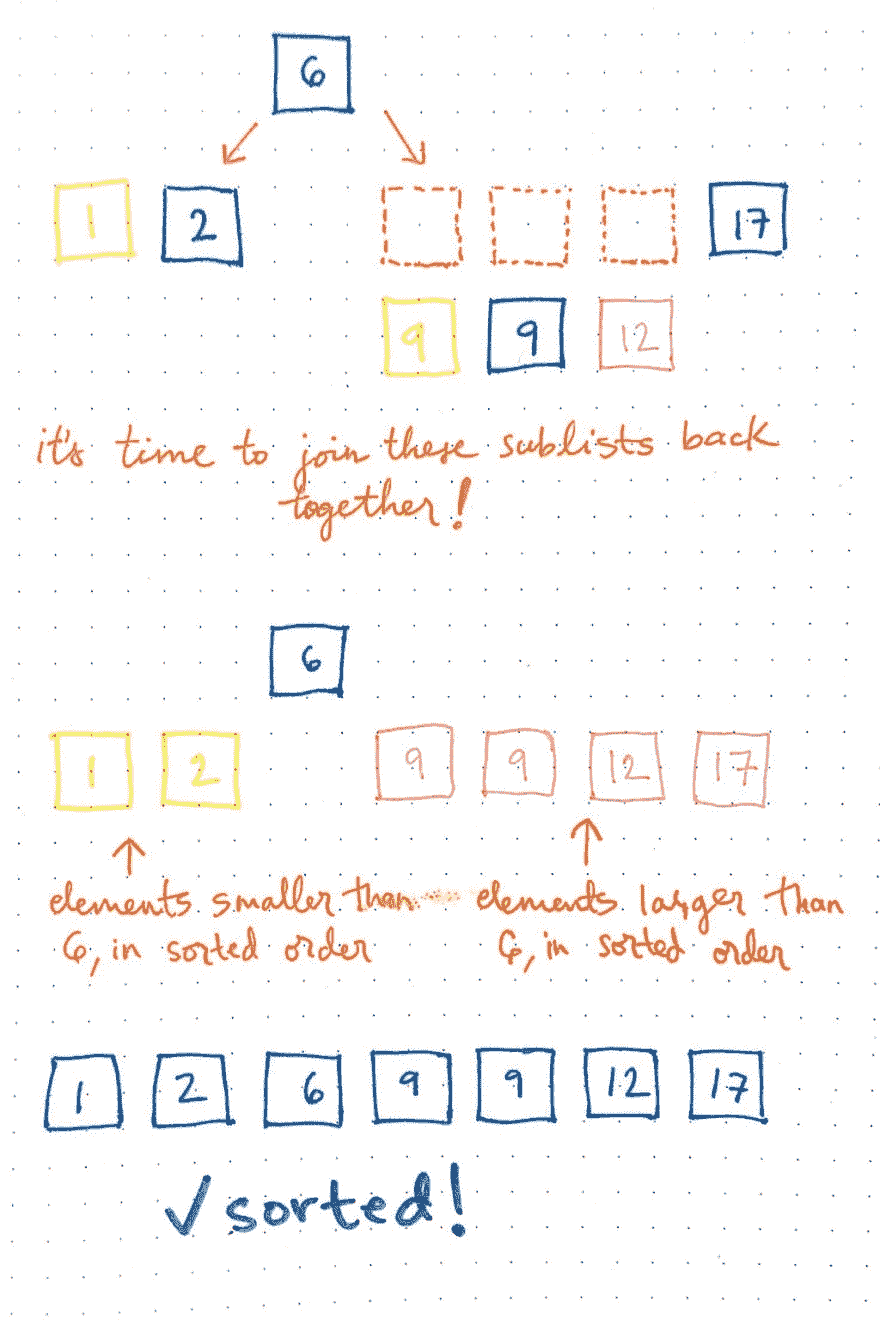 6
1 2 17
9 9 12
it's time to join these sublists back
together!
6
1 2 9 9 12 17
elements smaller than elements larger than
6, in sorted order 6, in sorted order
1 2 6 9 9 12 17
✓ sorted!